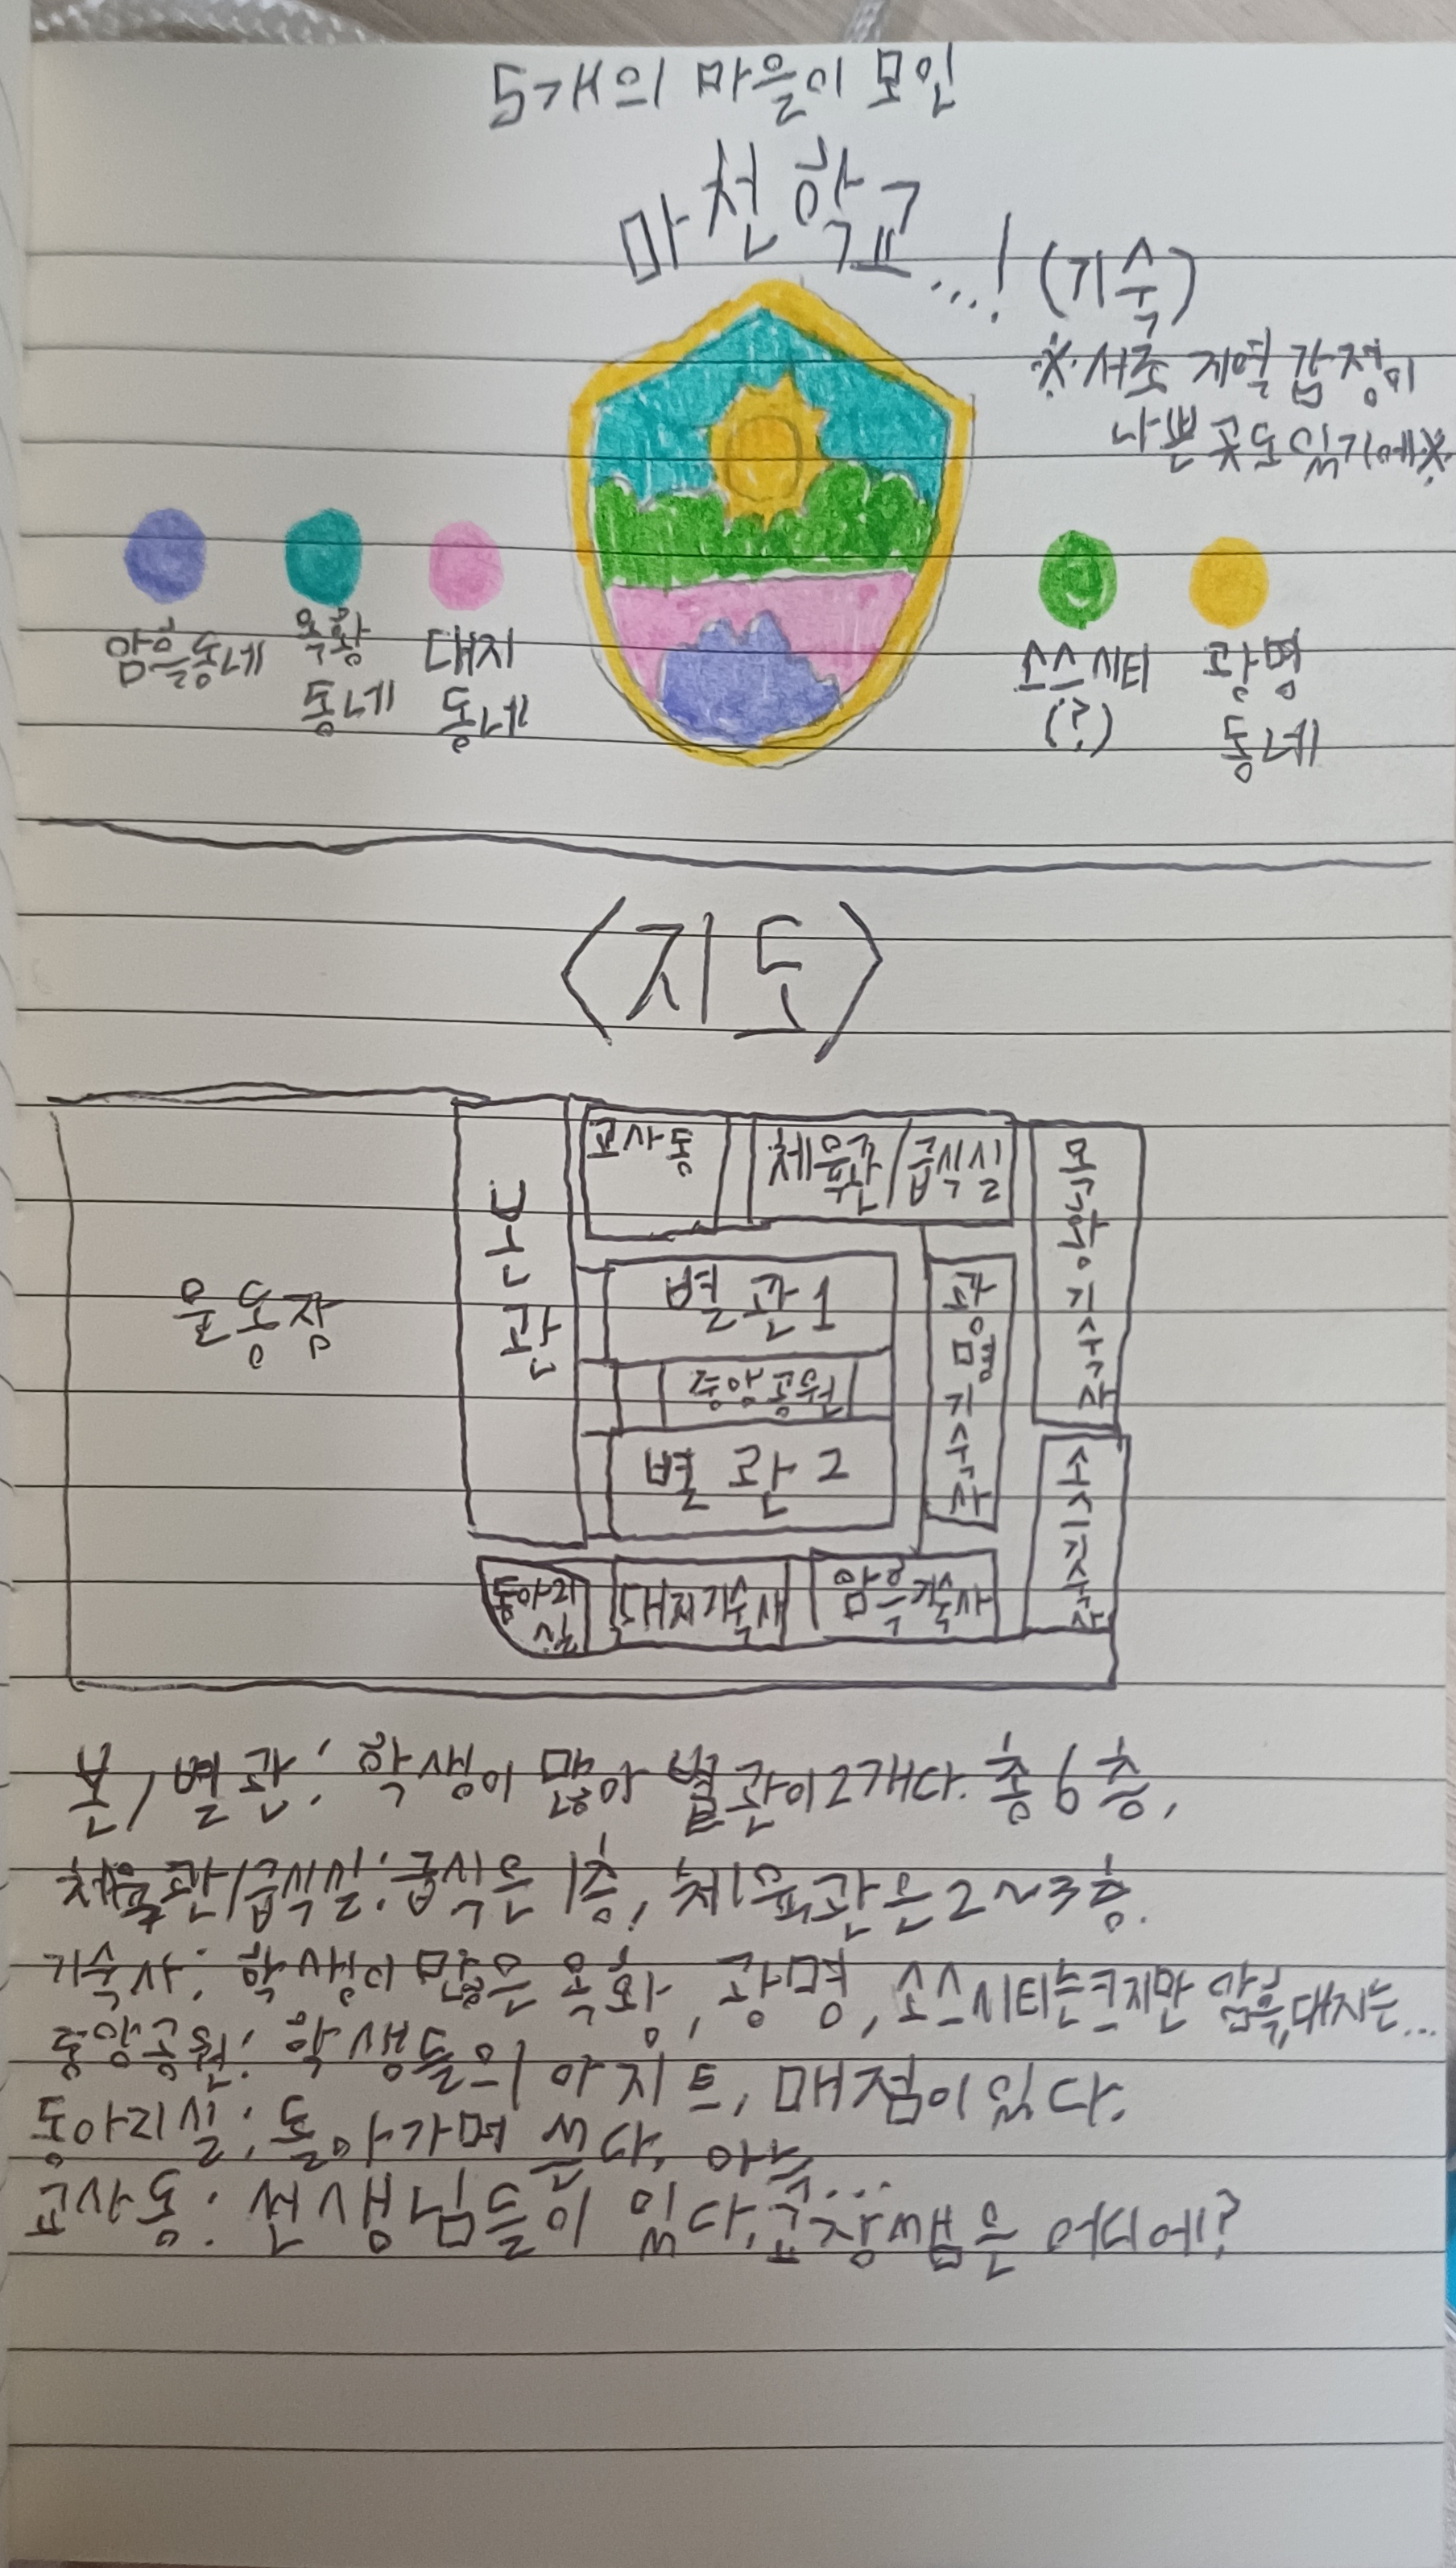 5개의 마을이 모인
마천학교...! (기숙)
※서로 지역 감정이
나쁜 곳도 있기에※
암흑동네
옥황
동네
대지
동네
소스시티
(?)
광명
동네
<지도>
운동장
본관
교사동
체육관/급식실
별관1
중앙공원
별관2
광명기숙사
옥황기숙사
소스기숙사
동아리
실
대지기숙사
암흑기숙사
본/별관: 학생이 많아 별관이 2개다. 총 6층,
체육관/급식실: 급식은 1층, 체육관은 2~3층.
기숙사: 학생이 많은 옥황, 광명, 소스시티는 크지만 암흑, 대지는...
중앙공원: 학생들의 아지트, 매점이 있다.
동아리실: 돌아가며 쓴다. 아주...
교사동: 선생님들이 있다. 교장쌤은 어디에?